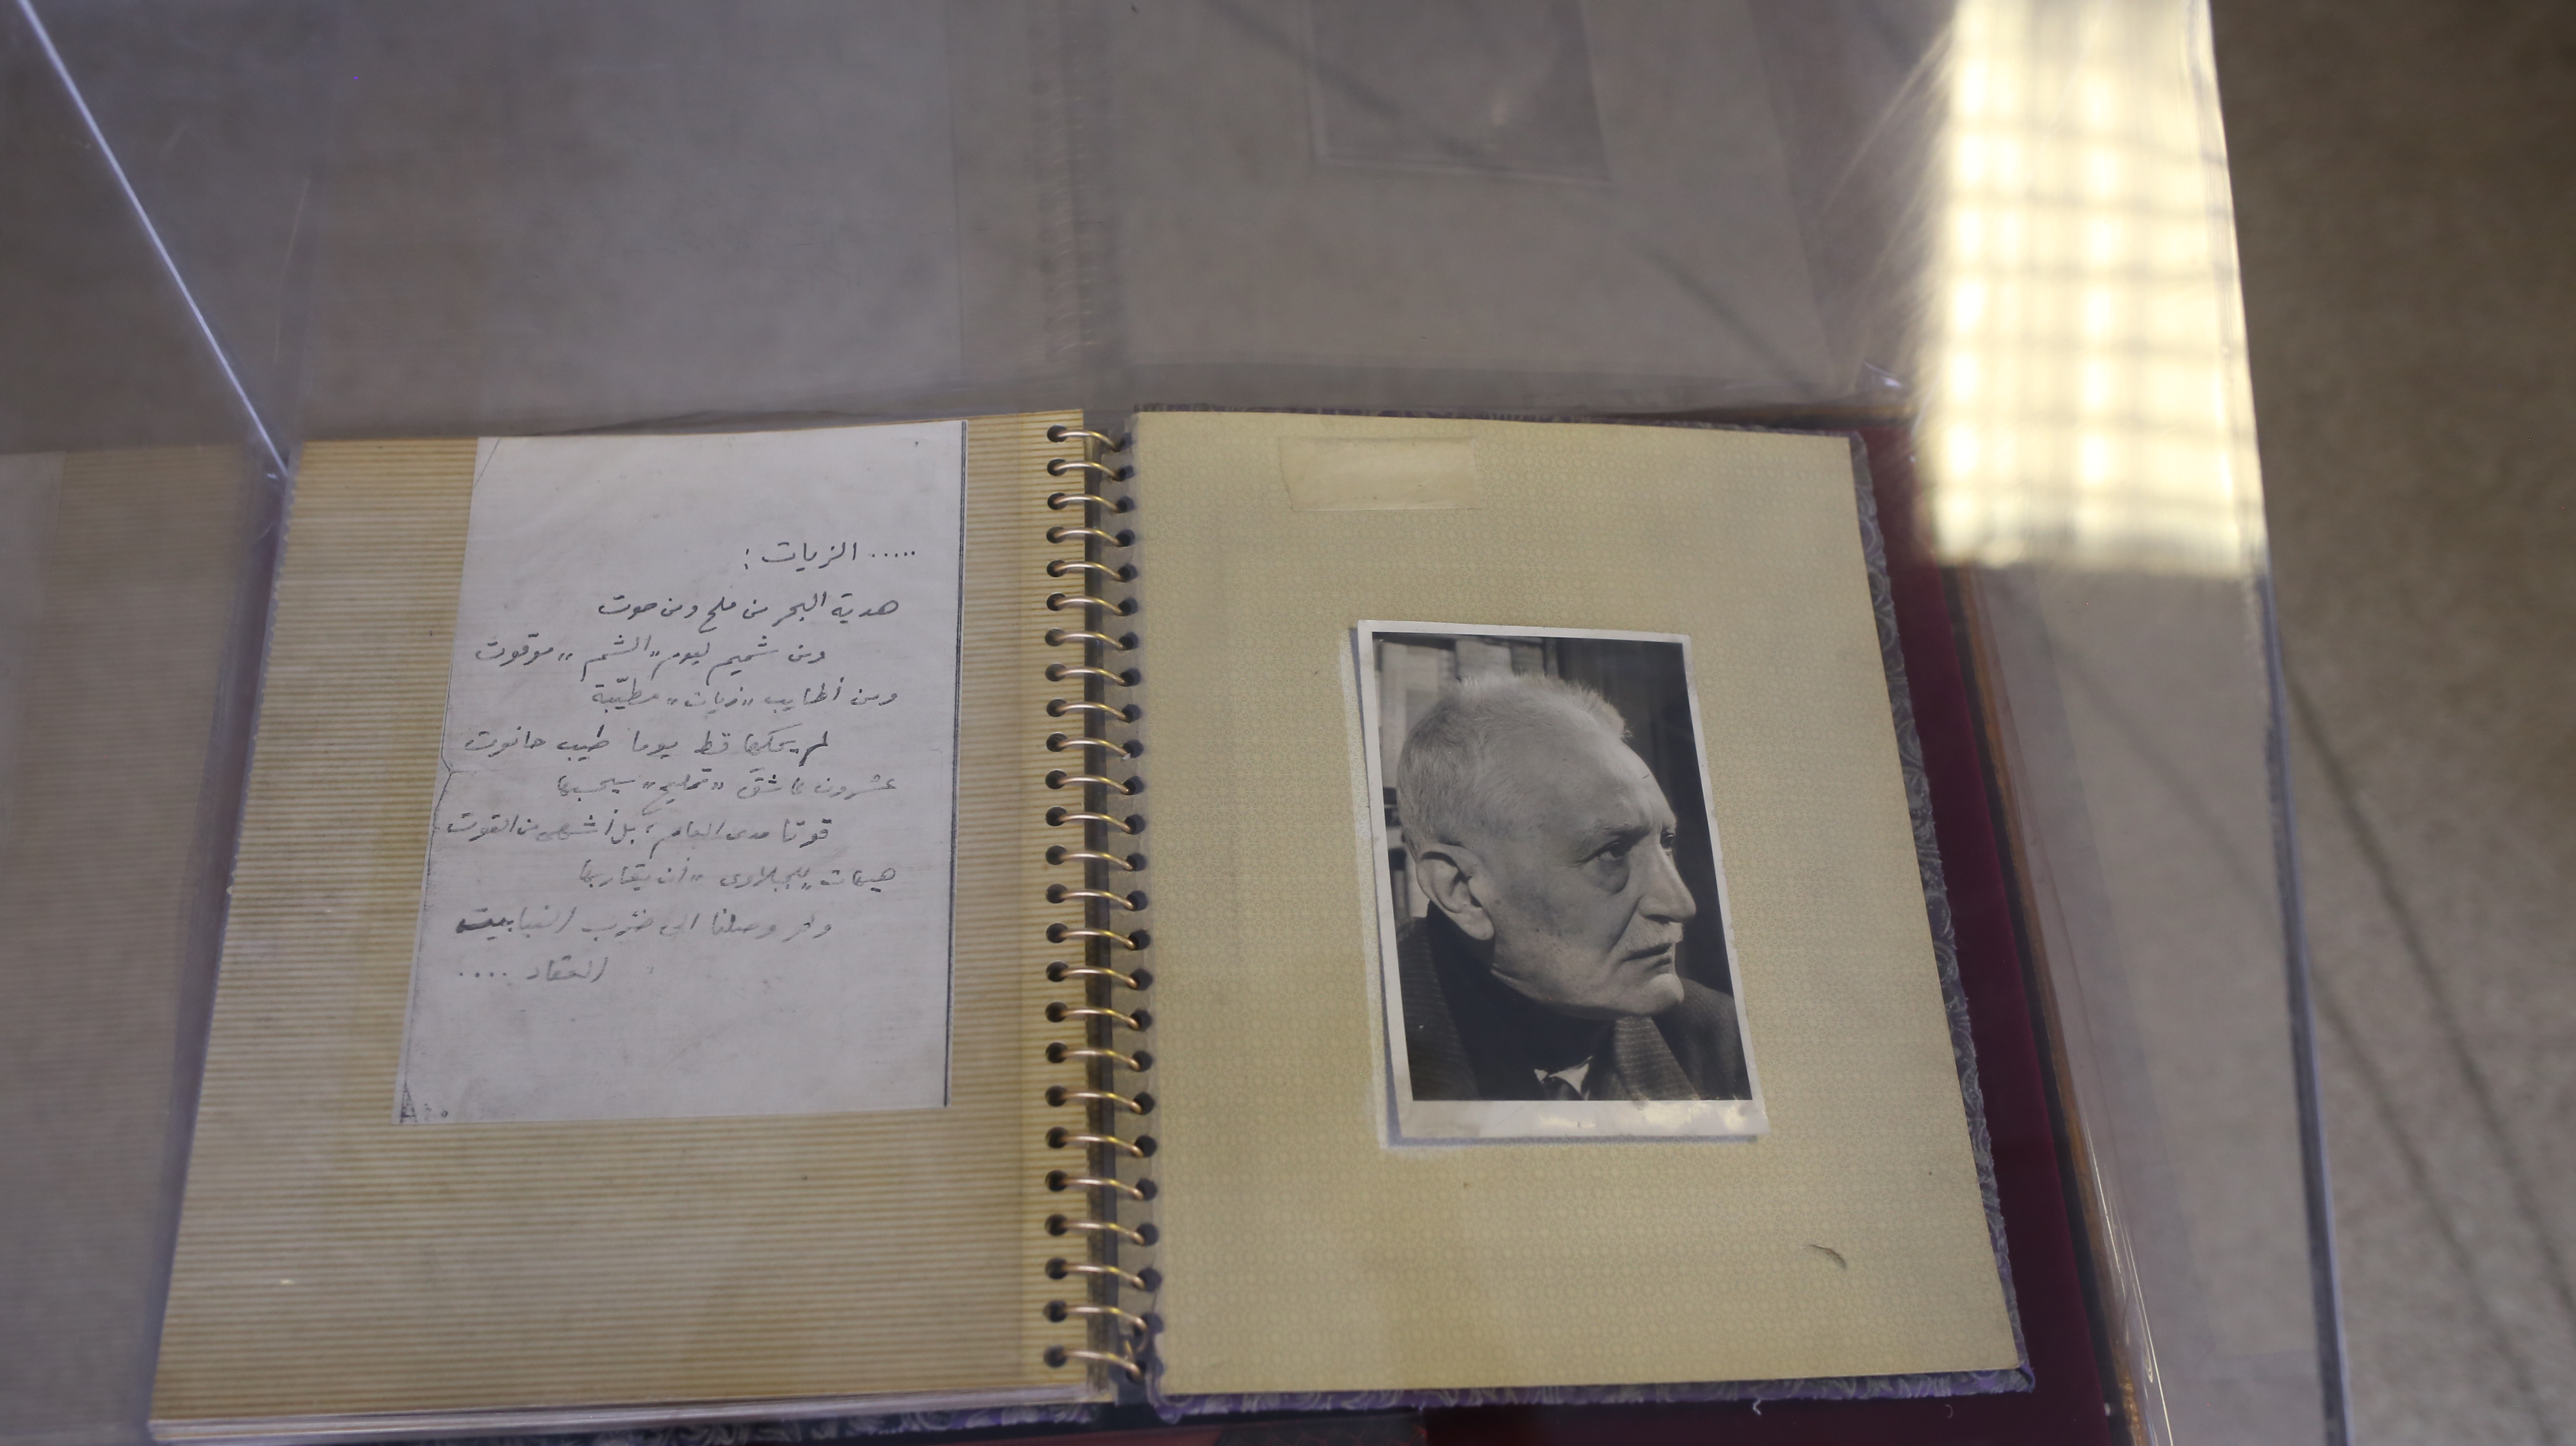 ..... الزيات :
هدية البحر من ملح ومن حوت
ومن شميم ليوم "الشم" موقوت
ومن أطايب "زيات" مطيّبة
لم يحكها قط يوما طيب حانوت
عشرون عاشق "تمليح" سيحسبها
قوتا مدى العام، بل أشهى من القوت
هيهات "للجبلاوى" أن يقاربها
ولو وصلنا الى ضرب النبابيت
العقاد ....